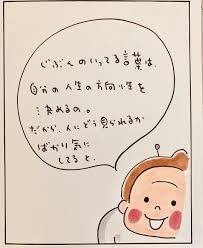 じぶんのいってる言葉は、
自分の人生の方向性を
決めるの。
だから、人にどう見られるか
ばかり気に
してると、